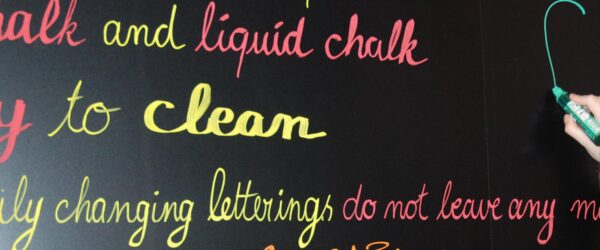 and liquid chalk
to clean
changing letterings do not leave any